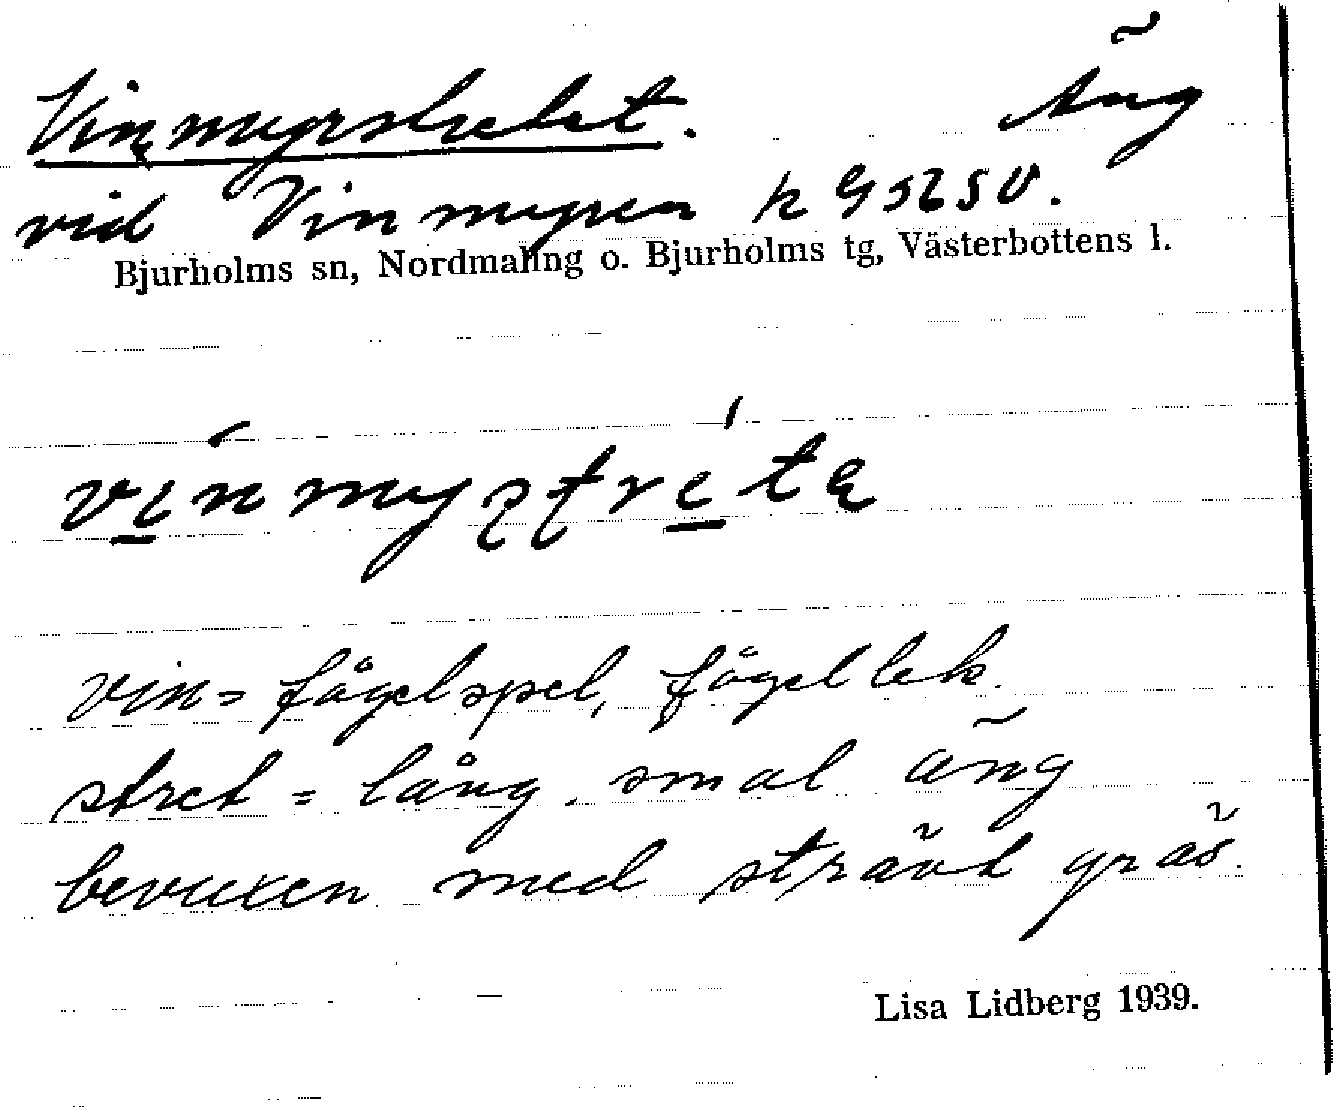 Vinmyrstretet. Äng
vid Vinmyren k 9525 V.
Bjurholms sn, Nordmaling o. Bjurholms tg, Västerbottens l.
vin = fågelspel, fågellek.
stret = lång, smal äng
bevuxen med strävt gräs.
Lisa Lidberg 1939.